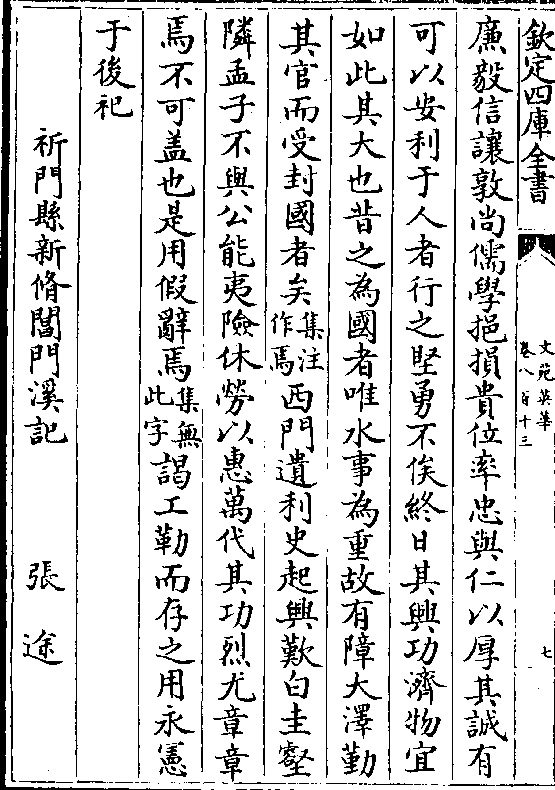 欽定四庫全書
文苑英華
卷八百十三
七
廉毅信讓敦尚儒學挹損貴位率忠與仁以厚其誠有
可以安利于人者行之堅勇不俟終日其興功濟物宜
如此其大也昔之為國者唯水事為重故有障大澤勤
其官而受封國者矣集注作焉西門遺利史起興歎白圭壑
隣孟子不與公能夷險休勞以惠萬代其功烈尤章章
焉不可盖也是用假辭焉集無此字謁工勒而存之用永憲
于後祀
祈門縣新脩閶門溪記
張途